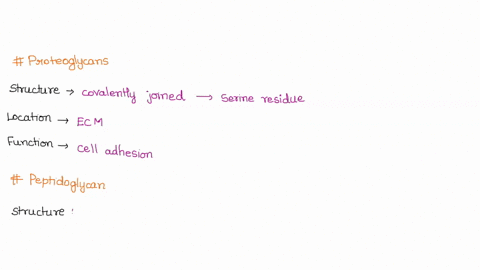 # Proteoglycans
Structure → covalently joined → serine residue
Location → ECM
Function → cell adhesion
# Peptidoglycan
Structure :